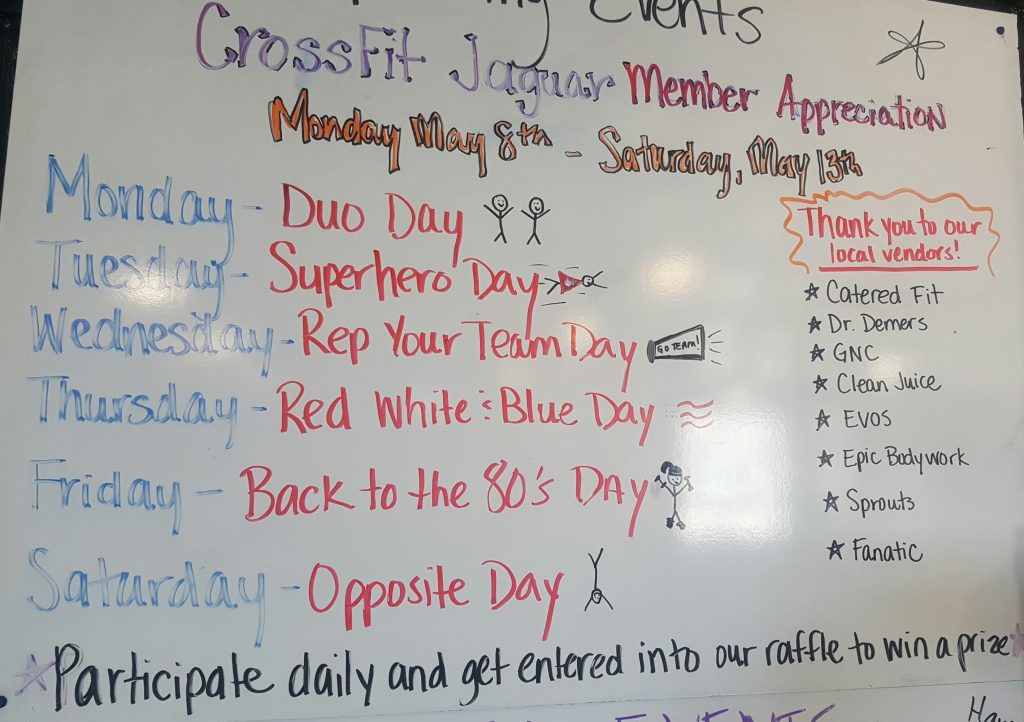 Events
CrossFit Jaguar Member Appreciation
Monday May 8th - Saturday, May 13th
Monday - Duo Day
Tuesday - Superhero Day
Wednesday - Rep Your Team Day
GO TEAM!
Thursday - Red White & Blue Day
Friday - Back to the 80's DAY
Saturday - Opposite Day
Thank you to our
local vendors!
☆ Catered Fit
☆ Dr. Demers
☆ GNC
☆ Clean Juice
☆ EVOS
☆ Epic Bodywork
☆ Sprouts
☆ Fanatic
☆ Participate daily and get entered into our raffle to win a prize ☆